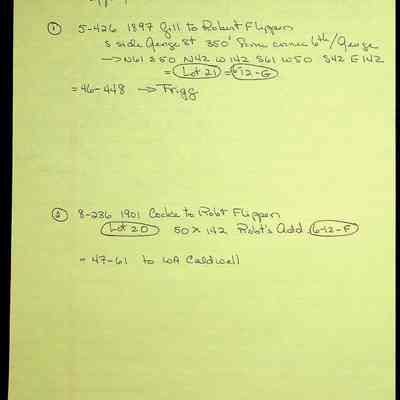 ① 5-426 1897 Gill to Robert Flippen
S side George St 350' from corner 6th/George
→ N61 E50 N42 W142 S61 W50 S42 E142
= Lot 21 = 6-12-G
= 46-448 → Frigg
② 8-236 1901 Cocke to Robt Flippen
Lot 20 50 x 142 Robt's Add. 6-12-F
= 47-61 to WA Caldwell